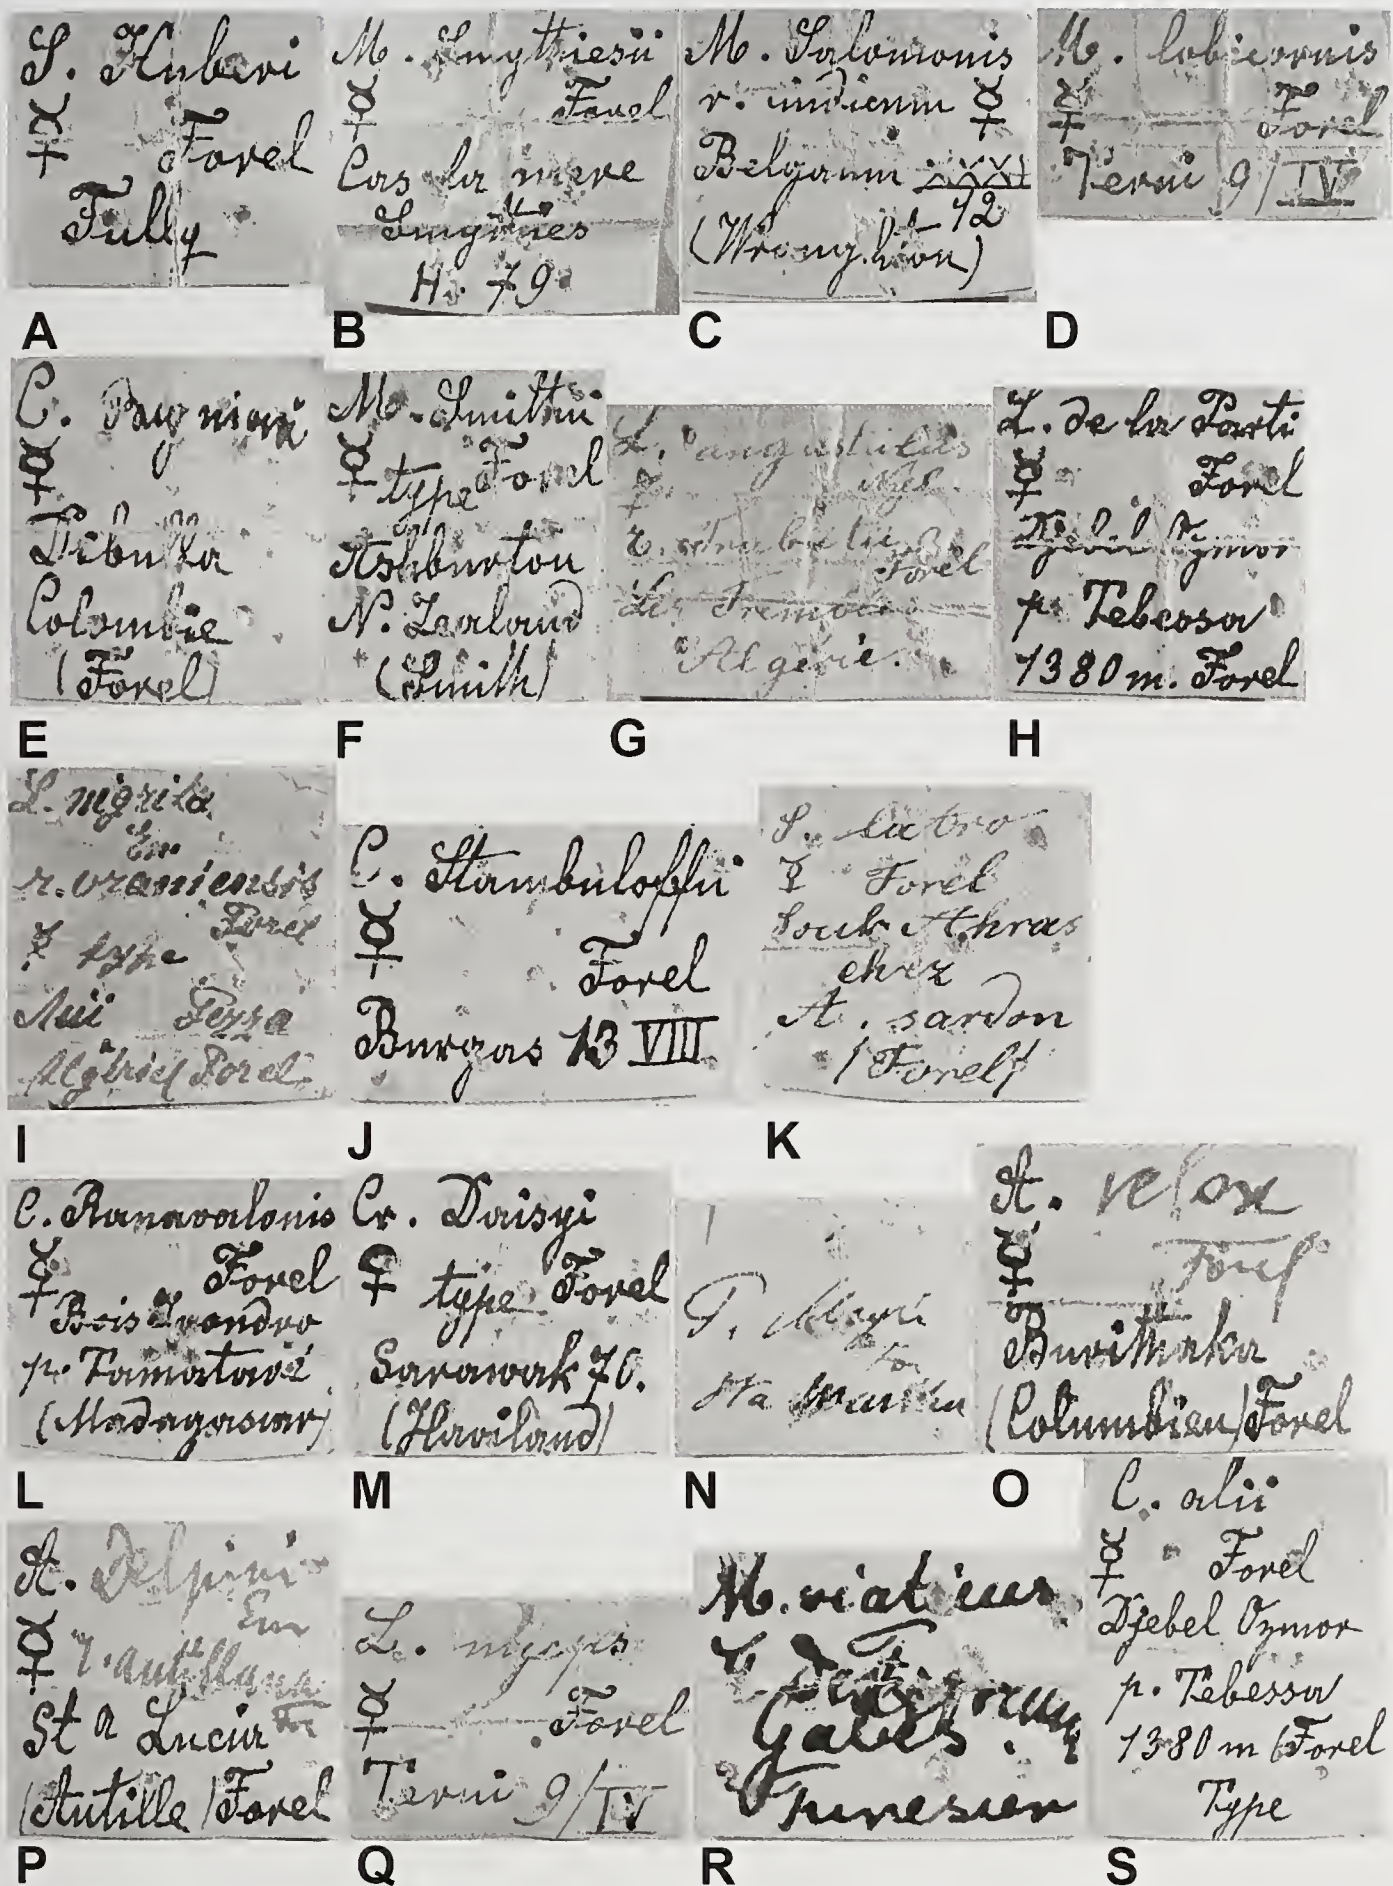 S. Huberi
☿ Forel
Fully
A
M. Smythiesii
☿ Forel
Cas la mere
Smythies
H. 79
B
M. Salomonis
r. indicum ☿
Belgaum
12
(Wroughton)
C
M. lobicornis
☿ Forel
Terni 9/IV
D
C.
☿
Dibulla
Colombie
(Forel)
E
M. Smithii
☿ type Forel
Ashburton
N. Zealand
(Smith)
F
L. angustulus
Nyl.
☿
Forel
Algérie.
G
L. de la Parti
☿ Forel
Djebel Ozmor
p. Tebessa
1380 m. Forel
H
L. nigrita
Em
r. oraniensis
☿ type Forel
Algérie Forel
I
C. Stambuloffii
☿
Forel
Burgas 13 VIII
J
S. latro
☿ Forel
Souk Ahras
chez
A. sardon
(Forel)
K
C. Ranavalonis
☿ Forel
Bois Ivondro
p. Tamatave
(Madagascar)
L
Cr. Daisyi
♀ type Forel
Sarawak 70.
(Haviland)
M
P.
For
Sta Martha
N
A. velox
☿ Forel
(Columbien) Forel
O
A. Delpini
Em
☿ r. antillana
For
St a Lucia
(Antille) Forel
P
L. myops
☿ Forel
Terni 9/IV
Q
M. viaticus
Gabes.
Tunesien
R
C. alii
☿ Forel
Djebel Ozmor
p. Tebessa
1380 m (Forel
Type
S